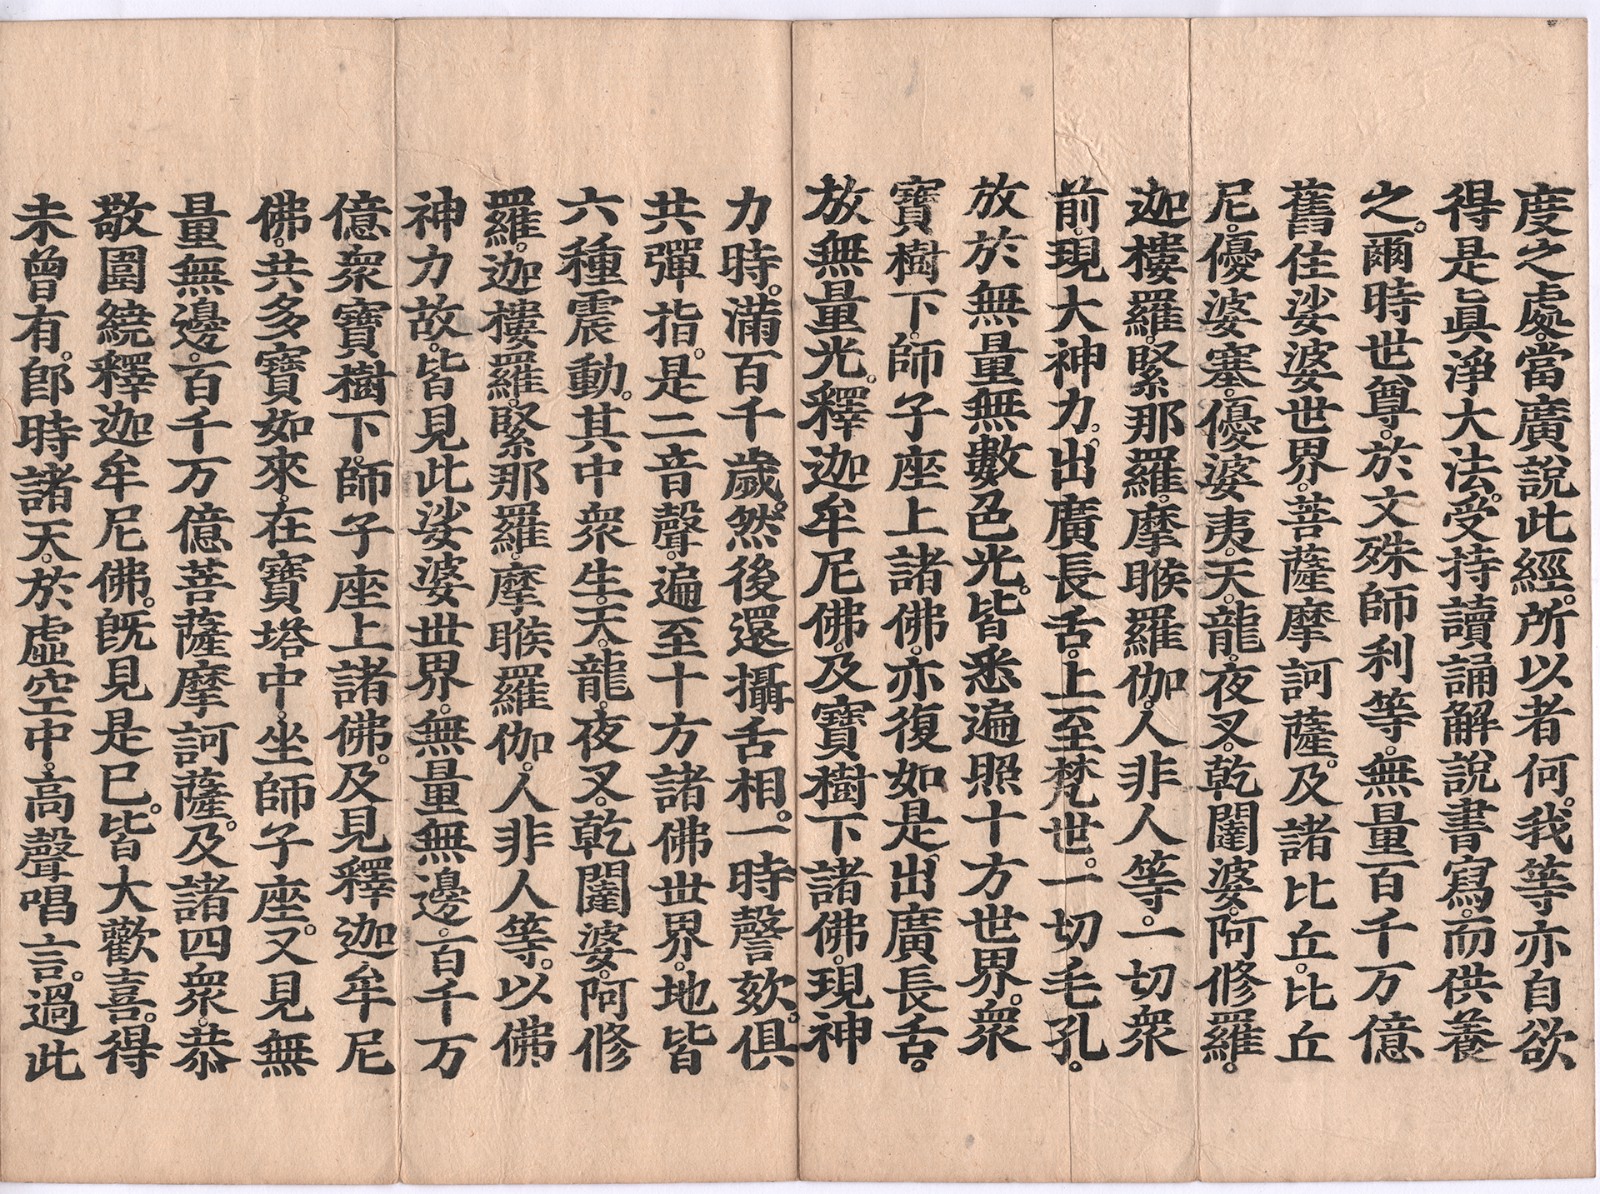 度之處。當廣說此經。所以者何。我等亦自欲
得是眞淨大法。受持讀誦解說書寫。而供養
之。爾時世尊。於文殊師利等。無量百千万億
舊住娑婆世界。菩薩摩訶薩。及諸比丘。比丘
尼。優婆塞。優婆夷。天。龍。夜叉。乾闥婆。阿修羅。
迦樓羅。緊那羅。摩睺羅伽。人非人等。一切衆
前。現大神力。出廣長舌。上至梵世。一切毛孔。
放於無量無數色光。皆悉遍照十方世界。衆
寶樹下。師子座上諸佛。亦復如是。出廣長舌。
放無量光。釋迦牟尼佛。及寶樹下諸佛。現神
力時。滿百千歲。然後還攝舌相。一時謦欬。俱
共彈指。是二音聲。遍至十方諸佛世界。地皆
六種震動。其中衆生。天。龍。夜叉。乾闥婆。阿修
羅。迦樓羅。緊那羅。摩睺羅伽。人非人等。以佛
神力故。皆見此娑婆世界。無量無邊。百千万
億衆寶樹下。師子座上諸佛。及見釋迦牟尼
佛。共多寶如來。在寶塔中。坐師子座。又見無
量無邊。百千万億菩薩摩訶薩。及諸四衆。恭
敬圍繞釋迦牟尼佛。旣見是已。皆大歡喜。得
未曾有。卽時諸天。於虛空中。高聲唱言。過此